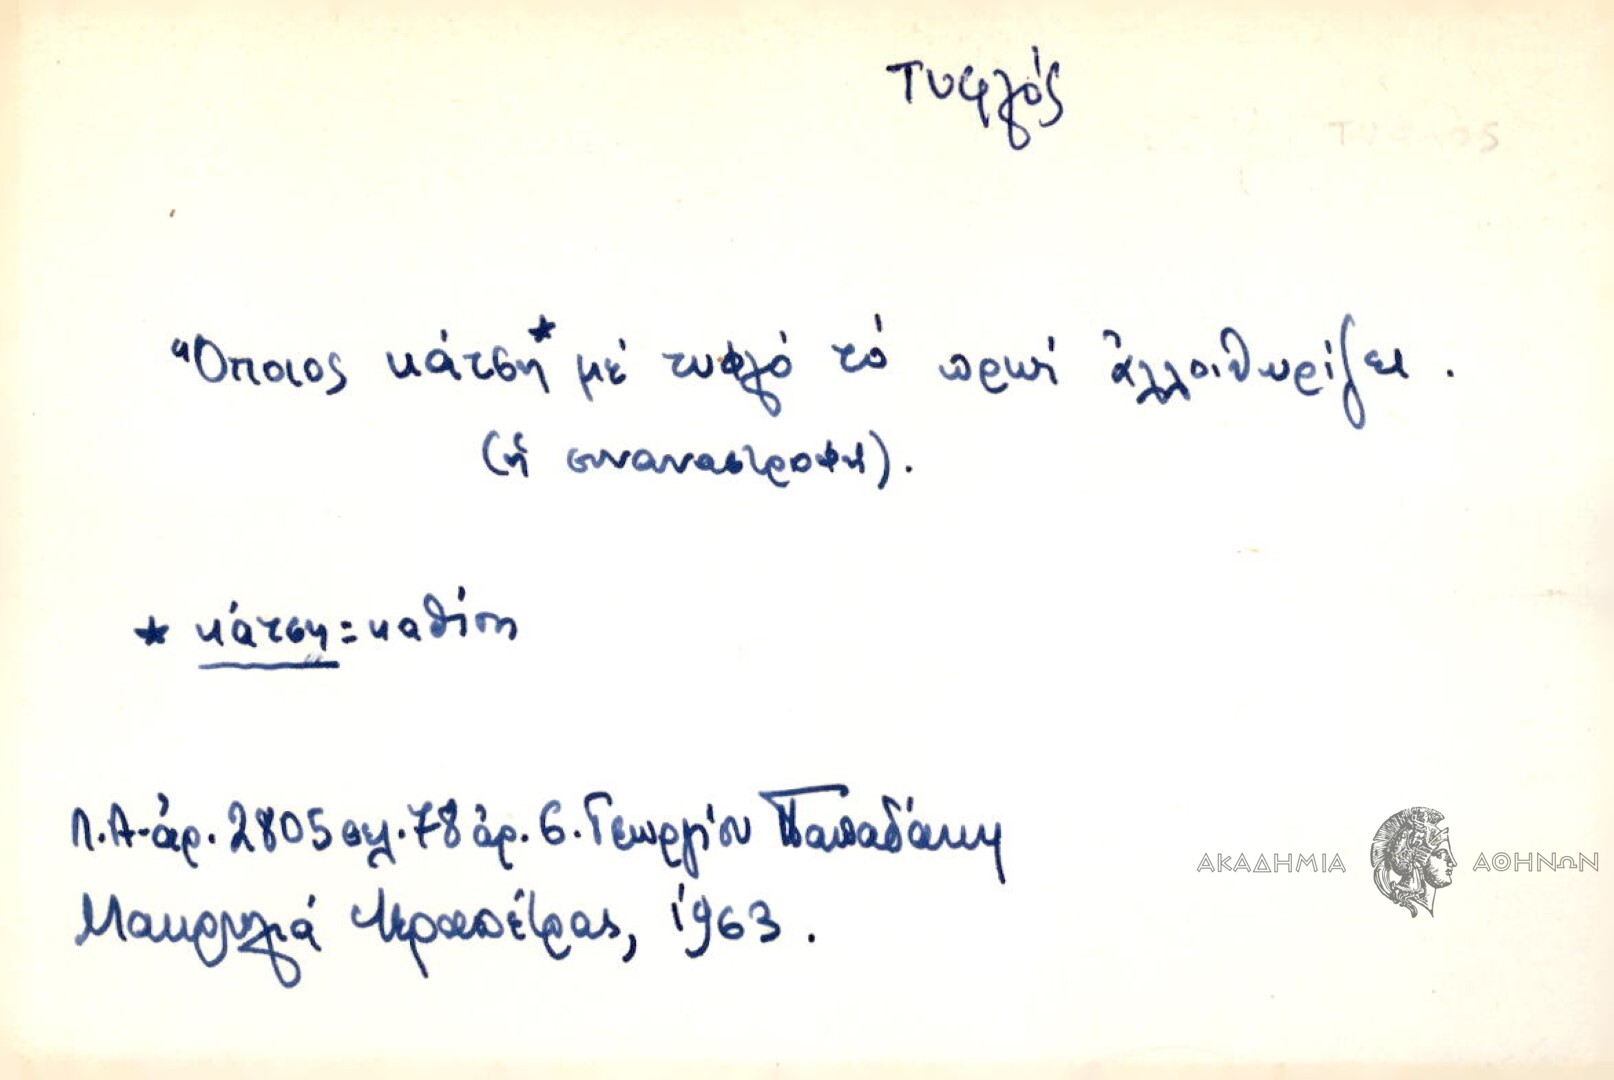 Τυφλός
Ὅποιος κάτση* μέ τυφλό τό πρωί ἀλλοιθωρίζει.
(ἡ συναναστροφή).
* κάτση = καθίση
Λ.Α. ἀρ. 2805 σελ. 78 ἀρ. 6. Γεωργίου Παπαδάκη
Μακρυλιά Ἱεραπέτρας, 1963.
ΑΚΑΔΗΜΙΑ ΑΘΗΝΩΝ